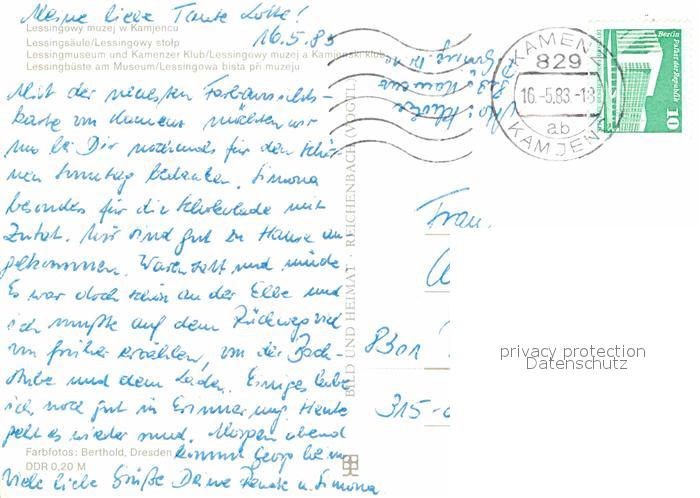 Meine liebe Tante Lotte!
16.5.83
Lessingowy muzej w Kamjencu
Lessingsäule/Lessingowy stołp
Lessingmuseum und Kamenzer Klub/Lessingowy muzej a Kamjenski klub
Lessingbüste am Museum/Lessingowa bista při muzeju
Mit der neuesten Farbansichts-
karte von Kamenz möchten wir
uns bei Dir nochmals für den schö-
nen Sonntag bedanken, Simona
besonders für die Schokolade mit
Zutat. Wir sind gut zu Hause an-
gekommen. Waren satt und müde.
Es war doch schön an der Elbe und
ich mußte auf dem Rückweg viel
von früher erzählen, von der Back-
stube und dem Laden. Einiges habe
ich noch gut in Erinnerung. Heute
geht es wieder rund. Morgen abend
kommt Georg heim
Viele liebe Grüße Deine Renate u. Simona
Farbfotos: Berthold, Dresden
DDR 0,20 M
BILD UND HEIMAT · REICHENBACH (VOGTL)
829 Kamenz
KAMENZ
829
16.-5.83.-18
ab
KAMJENC
Berlin
Palast der Republik
10
Frau
8301
315-
privacy protection
Datenschutz